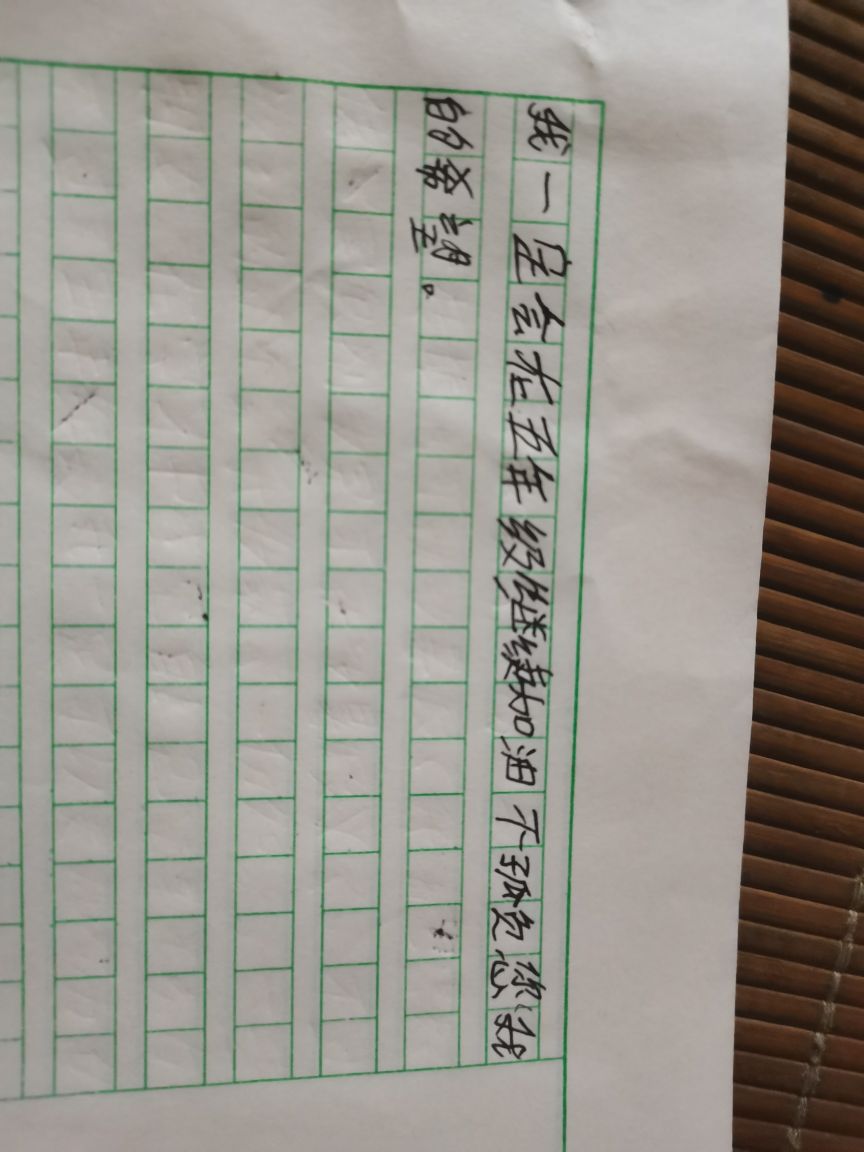 我一定会在五年级继续加油不孤负您我
的希望。